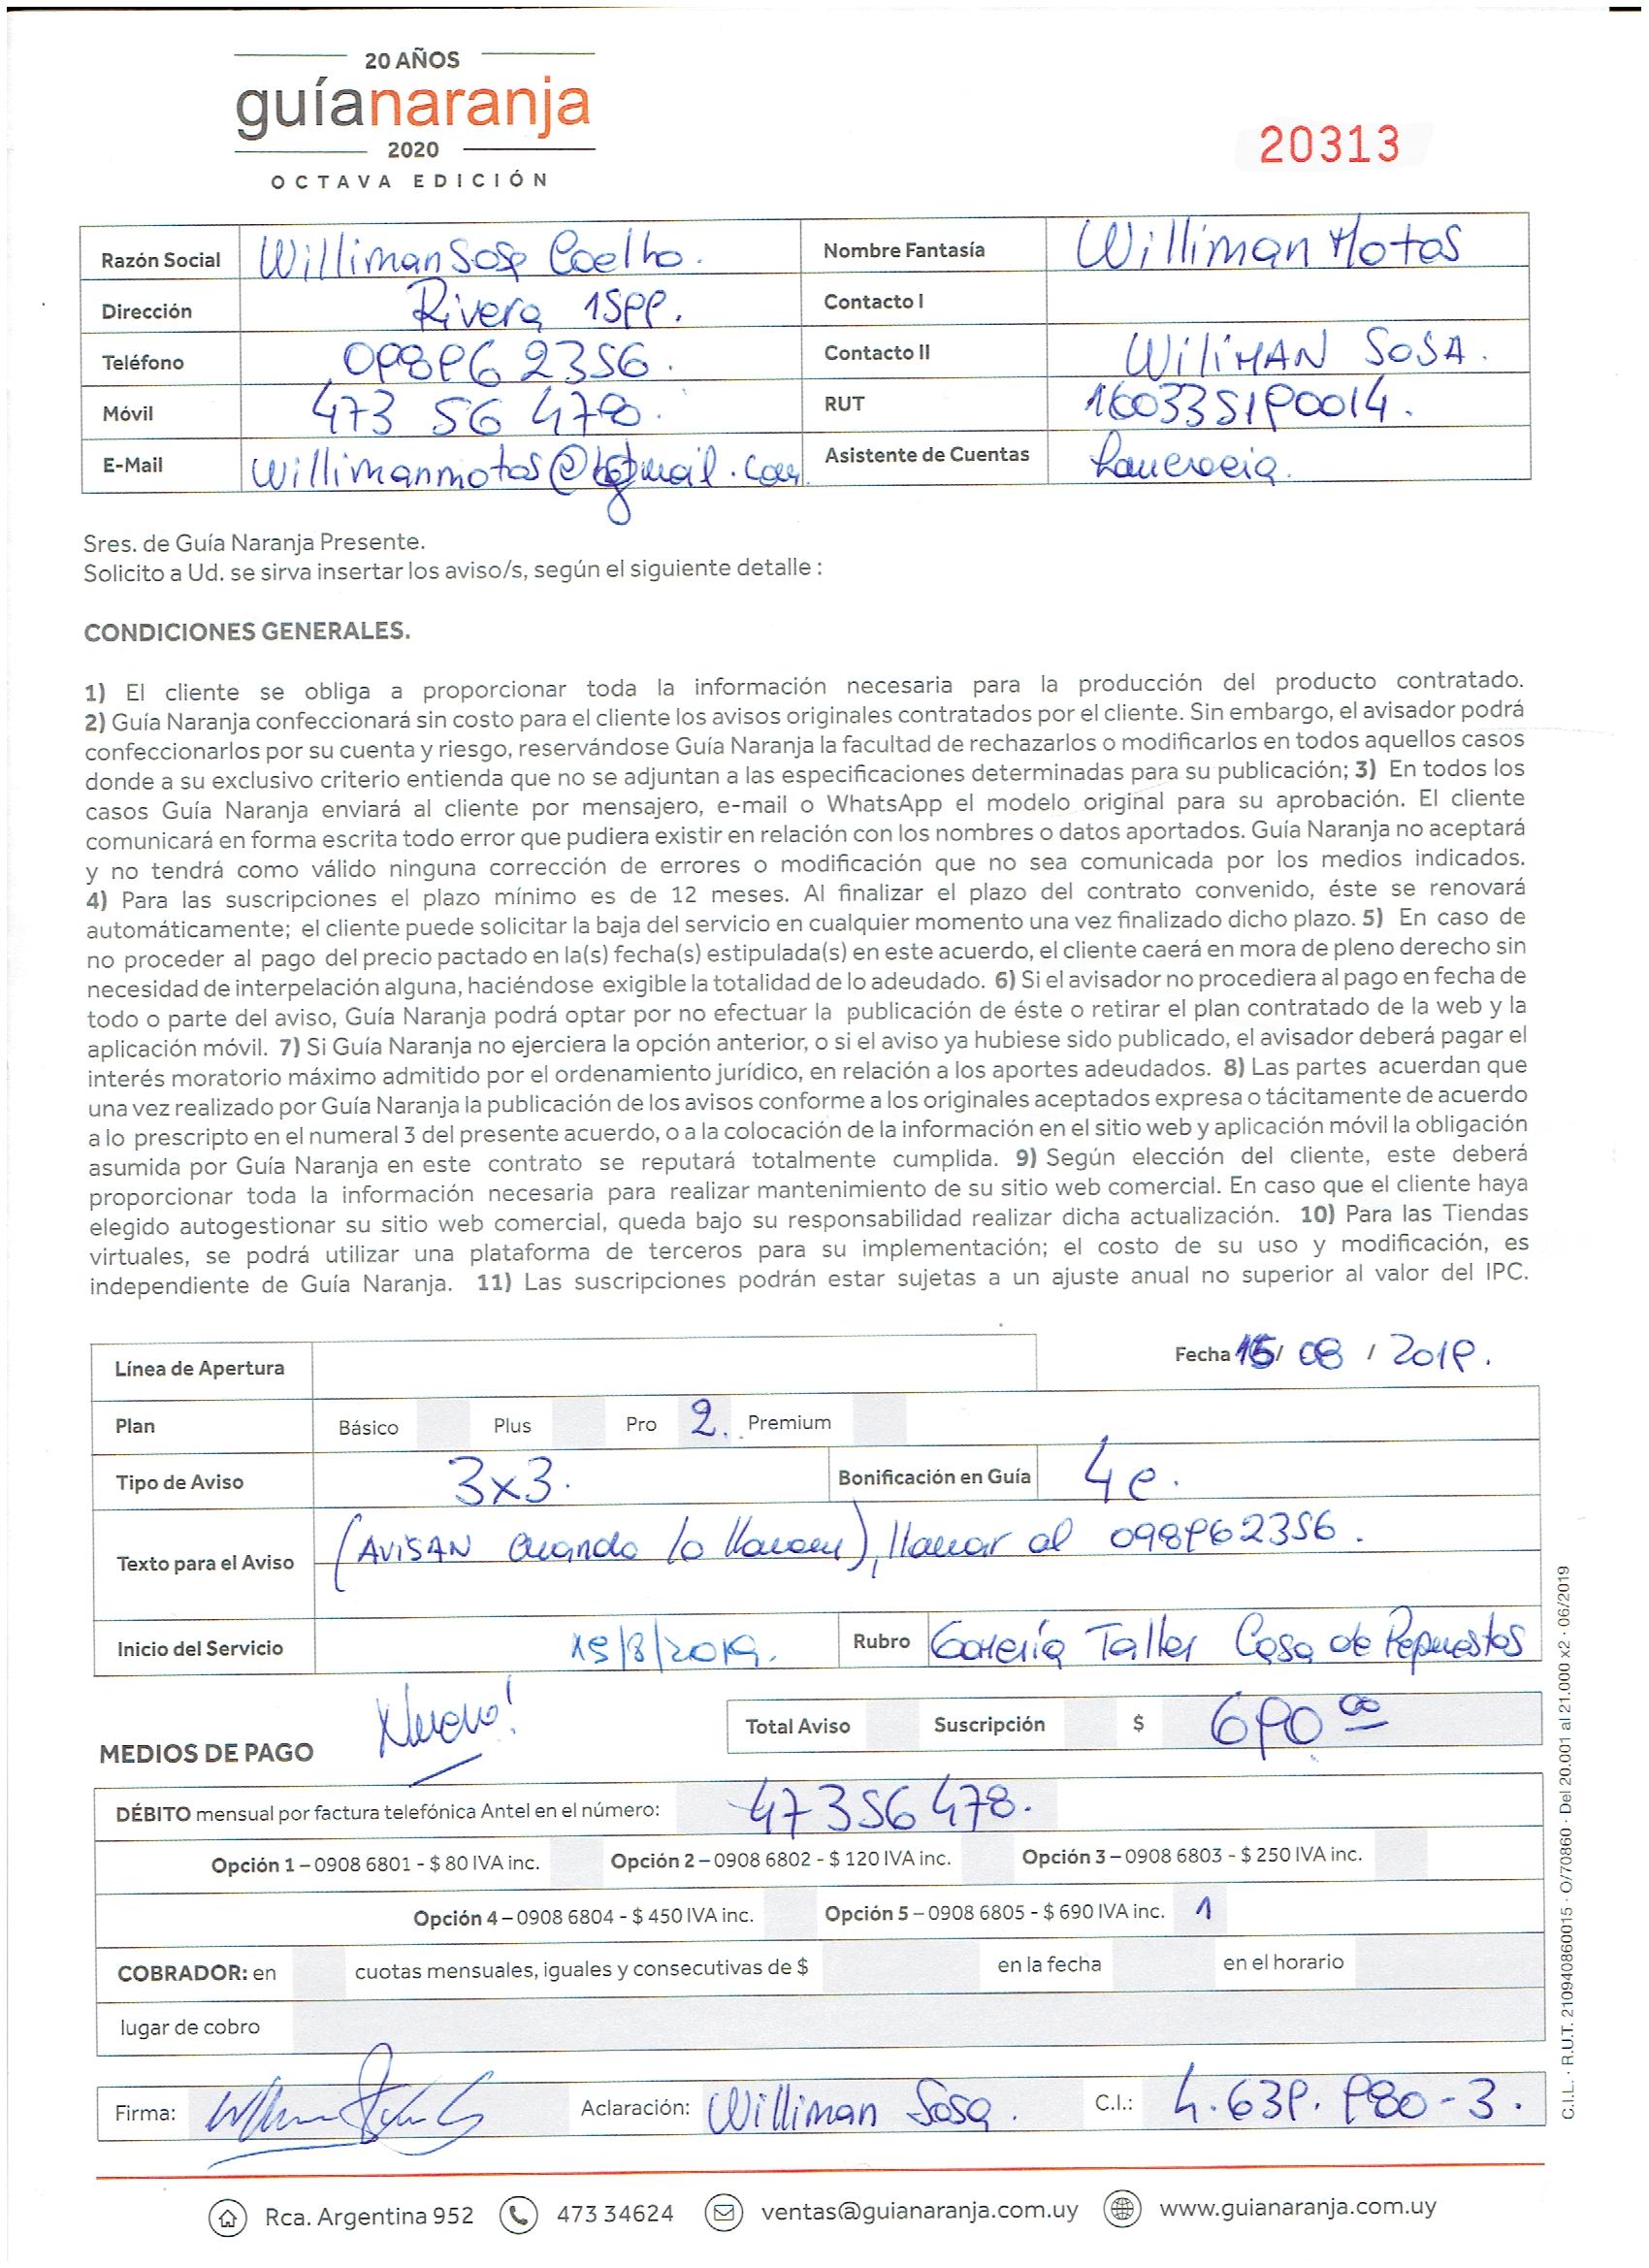 20 AÑOS
guíanaranja
2020
OCTAVA EDICIÓN
20313
Razón Social Williman Sosa Coelho. Nombre Fantasía Williman Motos
Dirección Rivera 1599. Contacto I
Teléfono 098962356. Contacto II WiliMAN SOSA.
Móvil 473 56 478. RUT 160335190014.
E-Mail willimanmotos@gmail.com Asistente de Cuentas
Sres. de Guía Naranja Presente.
Solicito a Ud. se sirva insertar los aviso/s, según el siguiente detalle :
CONDICIONES GENERALES.
1) El cliente se obliga a proporcionar toda la información necesaria para la producción del producto contratado.
2) Guía Naranja confeccionará sin costo para el cliente los avisos originales contratados por el cliente. Sin embargo, el avisador podrá
confeccionarlos por su cuenta y riesgo, reservándose Guía Naranja la facultad de rechazarlos o modificarlos en todos aquellos casos
donde a su exclusivo criterio entienda que no se adjuntan a las especificaciones determinadas para su publicación; 3) En todos los
casos Guía Naranja enviará al cliente por mensajero, e-mail o WhatsApp el modelo original para su aprobación. El cliente
comunicará en forma escrita todo error que pudiera existir en relación con los nombres o datos aportados. Guía Naranja no aceptará
y no tendrá como válido ninguna corrección de errores o modificación que no sea comunicada por los medios indicados.
4) Para las suscripciones el plazo mínimo es de 12 meses. Al finalizar el plazo del contrato convenido, éste se renovará
automáticamente; el cliente puede solicitar la baja del servicio en cualquier momento una vez finalizado dicho plazo. 5) En caso de
no proceder al pago del precio pactado en la(s) fecha(s) estipulada(s) en este acuerdo, el cliente caerá en mora de pleno derecho sin
necesidad de interpelación alguna, haciéndose exigible la totalidad de lo adeudado. 6) Si el avisador no procediera al pago en fecha de
todo o parte del aviso, Guía Naranja podrá optar por no efectuar la publicación de éste o retirar el plan contratado de la web y la
aplicación móvil. 7) Si Guía Naranja no ejerciera la opción anterior, o si el aviso ya hubiese sido publicado, el avisador deberá pagar el
interés moratorio máximo admitido por el ordenamiento jurídico, en relación a los aportes adeudados. 8) Las partes acuerdan que
una vez realizado por Guía Naranja la publicación de los avisos conforme a los originales aceptados expresa o tácitamente de acuerdo
a lo prescripto en el numeral 3 del presente acuerdo, o a la colocación de la información en el sitio web y aplicación móvil la obligación
asumida por Guía Naranja en este contrato se reputará totalmente cumplida. 9) Según elección del cliente, este deberá
proporcionar toda la información necesaria para realizar mantenimiento de su sitio web comercial. En caso que el cliente haya
elegido autogestionar su sitio web comercial, queda bajo su responsabilidad realizar dicha actualización. 10) Para las Tiendas
virtuales, se podrá utilizar una plataforma de terceros para su implementación; el costo de su uso y modificación, es
independiente de Guía Naranja. 11) Las suscripciones podrán estar sujetas a un ajuste anual no superior al valor del IPC.
Línea de Apertura Fecha 15/ 08 / 2019.
Plan Básico Plus Pro 2. Premium
Tipo de Aviso 3x3. Bonificación en Guía 4e.
Texto para el Aviso (AViSAN cuando lo llamen), llamar al 098962356.
Inicio del Servicio 15/8/2019. Rubro Taller Casa de Repuestos
Nuevo!
Total Aviso Suscripción $ 690 00
MEDIOS DE PAGO
DÉBITO mensual por factura telefónica Antel en el número: 47356478.
Opción 1 – 0908 6801 - $ 80 IVA inc. Opción 2 – 0908 6802 - $ 120 IVA inc. Opción 3 – 0908 6803 - $ 250 IVA inc.
Opción 4 – 0908 6804 - $ 450 IVA inc. Opción 5 – 0908 6805 - $ 690 IVA inc. 1
COBRADOR: en cuotas mensuales, iguales y consecutivas de $ en la fecha en el horario
lugar de cobro
Firma: Aclaración: Williman Sosa. C.I.: 4.639.980-3.
Rca. Argentina 952 473 34624 ventas@guianaranja.com.uy www.guianaranja.com.uy
C.I.L. · R.U.T. 210940860015 · O/70860 · Del 20.001 al 21.000 x2 · 06/2019